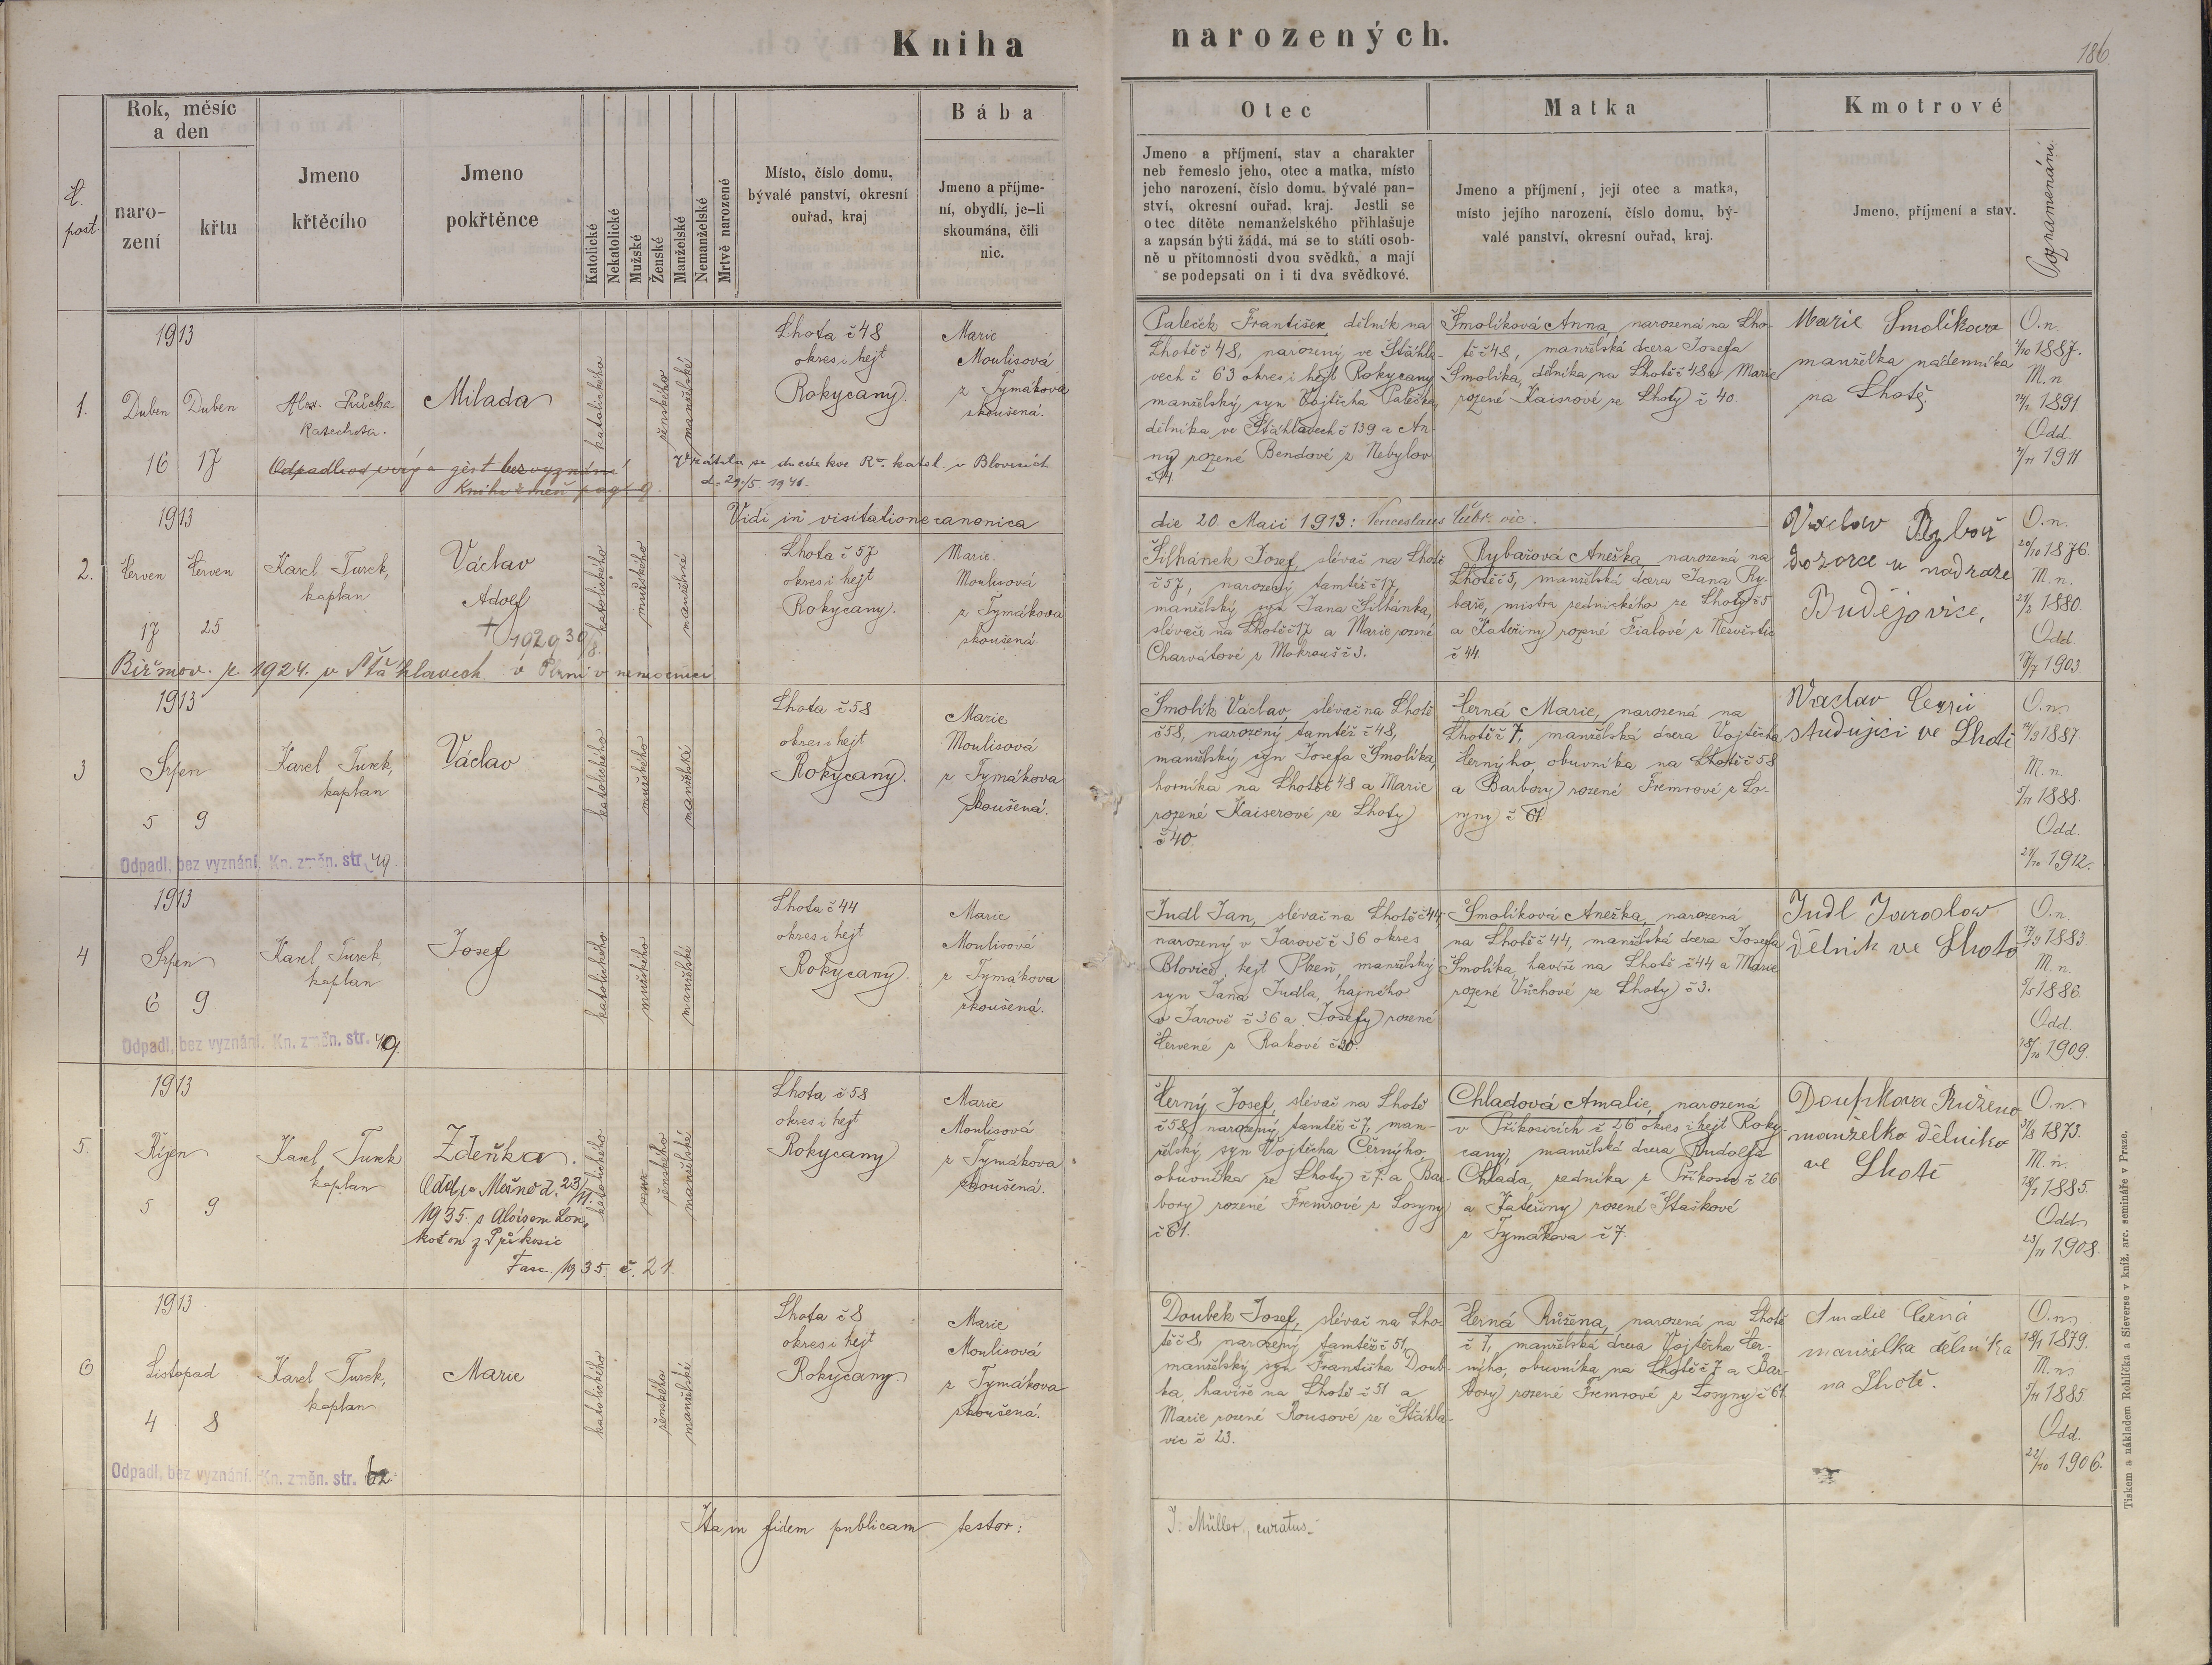 Kniha narozených.
186
Č. post.
Rok, měsíc a den
naro-
zení
křtu
Jmeno
křtěcího
Jmeno
pokřtěnce
Katolické
Nekatolické
Mužské
Ženské
Manželské
Nemanželské
Mrtvě narozené
Místo, číslo domu,
bývalé panství, okresní
ouřad, kraj
Bába
Jmeno a příjme-
ní, obydlí, je-li
skoumána, čili
nic.
Otec
Jmeno a příjmení, stav a charakter
neb řemeslo jeho, otec a matka, místo
jeho narození, číslo domu, bývalé pan-
ství, okresní ouřad, kraj. Jestli se
otec dítěte nemanželského přihlašuje
a zapsán býti žádá, má se to státi osob-
ně u přítomnosti dvou svědků, a mají
se podepsati on i ti dva svědkové.
Matka
Jmeno a příjmení, její otec a matka,
místo jejího narození, číslo domu, bý-
valé panství, okresní ouřad, kraj.
Kmotrové
Jmeno, příjmení a stav.
Poznamenání
1.
1913
Duben Duben
16 17
Alex. Průcha
Katecheta.
Milada
katolického
ženského
manželské
Lhota č 48
okres i hejt
Rokycany.
Marie
Moulisová
z Tymákova
zkoušená.
Odpadla od víry a jest bez vyznání
Kniha změn pag. 9.
Vrátila se do církve Ř. katol. v Blovicích
d. 29./5. 1941.
Paleček František dělník na
Lhotě č 48, narozený ve Štáhla-
vech č 63 okres i hejt Rokycany
manželský syn Vojtěcha Palečka
dělníka ve Štáhlavech č 139 a An-
ny rozené Bendové z Nebylov
č 14.
Smolíková Anna, narozená na Lho-
tě č 48, manželská dcera Josefa
Smolíka, dělníka na Lhotě č 48 a Marie
rozené Kaisrové ze Lhoty č 40.
Marie Smolíkova
manželka nádenníka
na Lhotě.
O.n.
1887.
M.n
1891
Odd.
1911.
Vidi in visitatione canonica die 20. Maii 1913: Venceslaus vic.
2.
1913
Červen Červen
17 25
Karel Turek,
kaplan
Václav
Adolf
† 1929 30/8.
v Plzni v nemocnici
Biřmov. r. 1924. v Štáhlavech.
katolického
mužského
manželské
Lhota č 57
okres i hejt
Rokycany.
Marie
Moulisová
z Tymákova
zkoušená
Šilhánek Josef, slévač na Lhotě
č 57, narozený tamtéž č 17,
manželský syn Jana Šilhánka,
slévače na Lhotě č 17 a Marie rozené
Charvátové z Mokrouš č 3.
Rybařová Anežka, narozená na
Lhotě č 5, manželská dcera Jana Ry-
baře, mistra zednického ze Lhoty č 5
a Kateřiny rozené Fialové z Nezvěstic
č 44.
Vaclav Rybař
dozorce u nadraze
Budějovice,
O.n.
20/10 1876.
M.n.
21/2 1880.
Odd.
1903.
3
1913
Srpen
5 9
Karel Turek,
kaplan
Václav
katolického
mužského
manželské
Lhota č 58
okres i hejt
Rokycany.
Marie
Moulisová
z Tymákova
zkoušená.
Odpadl, bez vyznání. Kn. změn. str. 49.
Smolík Václav, slévač na Lhotě
č 58, narozený tamtéž č 48,
manželský syn Josefa Smolíka,
horníka na Lhotě č 48 a Marie
rozené Kaiserové ze Lhoty
č 40.
Černá Marie, narozená na
Lhotě č 7, manželská dcera Vojtěcha
Černýho, obuvníka na Lhotě č 58
a Barbory rozené Fremrové z Lo-
syny č 61.
Vaclav Černi
studujici ve Lhotě
O.n.
14/9 1887.
M.n.
5/11 1888.
Odd.
21/10 1912.
4
1913
Srpen
6 9
Karel Turek,
kaplan
Josef
katolického
mužského
manželské
Lhota č 44
okres i hejt
Rokycany.
Marie
Moulisová
z Tymákova
zkoušená.
Odpadl, bez vyznání. Kn. změn. str. 49.
Judl Jan, slévač na Lhotě č 44,
narozený v Jarově č 36 okres
Blovice, hejt Plzeň, manželský
syn Jana Judla, hajného
v Jarově č 36 a Josefy rozené
Červené z Rakové č 20.
Smolíková Anežka, narozená
na Lhotě č 44, manželská dcera Josefa
Smolíka, havíře na Lhotě č 44 a Marie
rozené Vůchové ze Lhoty č 3.
Judl Jaroslav
dělnik ve Lhotě
O.n.
17/9 1883.
M.n.
5/5 1886.
Odd.
18/10 1909.
5.
1913
Říjen
5 9
Karel Turek
kaplan
Zdeňka.
Odd. ve Mešno d. 23/11.
1935. s Aloisem Lon-
kotem z Příkosic
Fasc. 1935. č. 21.
katolického
ženského
manželské
Lhota č 58
okres i hejt
Rokycany
Marie
Moulisová
z Tymákova
zkoušená.
Černý Josef, slévač na Lhotě
č 58, narozený tamtéž č 7, man-
želský syn Vojtěcha Černýho,
obuvníka ze Lhoty č 7. a Bar-
bory rozené Fremrové z Losyny
č 61.
Chladová Amalie, narozená
v Příkosicích č 26 okres i hejt Roky-
cany, manželská dcera Rudolfa
Chlada, zedníka z Příkosic č 26
a Kateřiny rozené Staškové
z Tymákova č 7.
Doubkova Růžena
manželka dělnika
ve Lhotě
O.n.
31/8 1873.
M.n.
1885.
Odd.
23/11 1908.
6
1913
Listopad
4 8
Karel Turek,
kaplan
Marie
katolického
ženského
manželské
Lhota č 8
okres i hejt
Rokycany.
Marie
Moulisová
z Tymákova
zkoušená.
Odpadl, bez vyznání. Kn. změn. str. 62.
Doubek Josef, slévač na Lho-
tě č 8, narozený tamtéž č 51,
manželský syn Františka Doub-
ka, havíře na Lhotě č 51 a
Marie rozené Rousové ze Štáhla-
vic č 23.
Černá Růžena, narozená na Lhotě
č 7, manželská dcera Vojtěcha Čer-
nýho, obuvníka na Lhotě č 7 a Bar-
bory rozené Fremrové z Losyny č 61.
Amalie Černá
manželka dělníka
na Lhotě.
O.n.
1879.
M.n.
5/11 1885.
Odd.
22/10 1906.
Ita in fidem publicam testor: J. Müller, curatus.
Tiskem a nákladem Rohlíčka a Sieverse v kníž. arc. semináře v Praze.